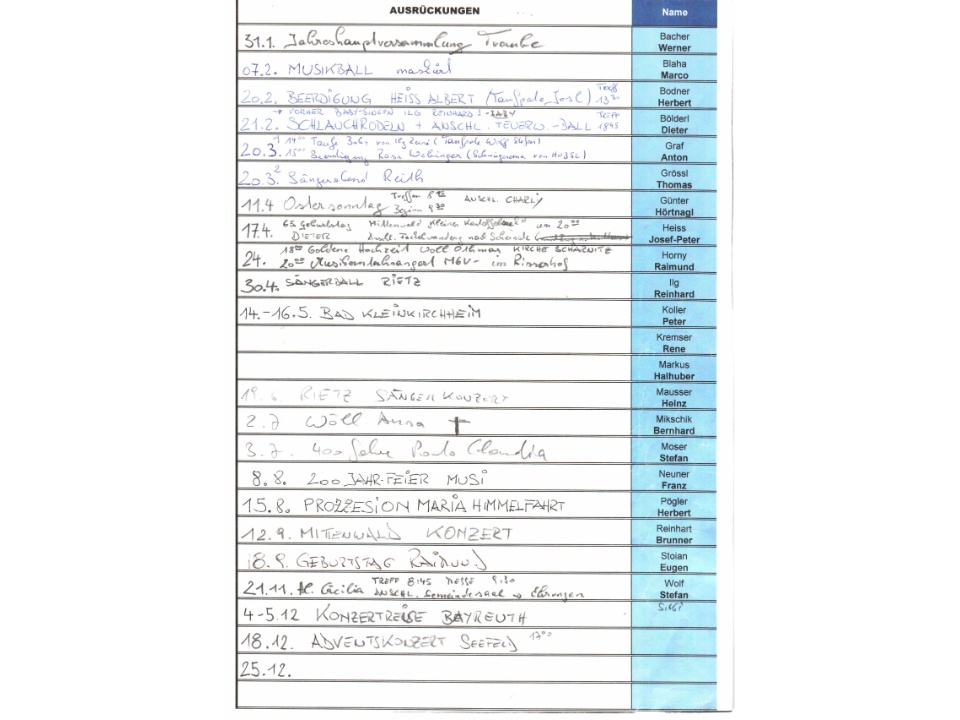 AUSRÜCKUNGEN
Name
31.1. Jahreshauptversammlung Traube
07.2. MUSIKBALL maskiert
20.2. BEERDIGUNG HEISS ALBERT (Taufpate Josl) TREFF 13
→ VORHER BABY-SINGEN ILG REINHARD! -BABY
21.2. SCHLAUCHRODELN + ANSCHL. FEUERW.-BALL TREFF 1845
20.3. 14 Taufe Baby von Ilg (Taufpate Wolf Stefan)
15 Beerdigung Rosa
20.3. Sängerabend Reith
11.4 Ostersonntag Treffen Beginn ANSCHL. CHARLY
17.4. 65. Geburtstag DIETER Mittenwald um 20
24. Goldene Hochzeit Wöll Othmar KIRCHE SCHARNITZ
20 MGV- im
30.4. SÄNGERBALL RIETZ
14.-16.5. BAD KLEINKIRCHHEIM
19.6. RIETZ SÄNGER KONZERT
2.7 Wöll Anna †
3.7. 400 Jahre Porta Claudia
8.8. 200 JAHR-FEIER MUSI
15.8. PROZZESION MARIA HIMMELFAHRT
12.9. MITTENWALD KONZERT
18.9. GEBURTSTAG RAIMUND
21.11. Hl. Cäcilia TREFF 8:45 MESSE 9:30
ANSCHL. Gemeindesaal → Ehrungen
4-5.12 KONZERTREISE BAYREUTH
18.12. ADVENTSKONZERT SEEFELD 17:00
25.12.
Bacher
Werner
Blaha
Marco
Bodner
Herbert
Bölderl
Dieter
Graf
Anton
Grössl
Thomas
Günter
Hörtnagl
Heiss
Josef-Peter
Horny
Raimund
Ilg
Reinhard
Koller
Peter
Kremser
Rene
Markus
Halhuber
Mausser
Heinz
Mikschik
Bernhard
Moser
Stefan
Neuner
Franz
Pögler
Herbert
Reinhart
Brunner
Stoian
Eugen
Wolf
Stefan